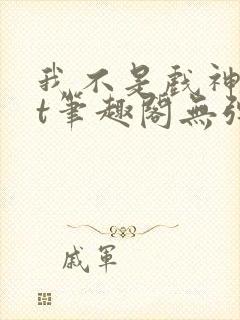 我不是戲神
t筆趣閣無彈
戚軍